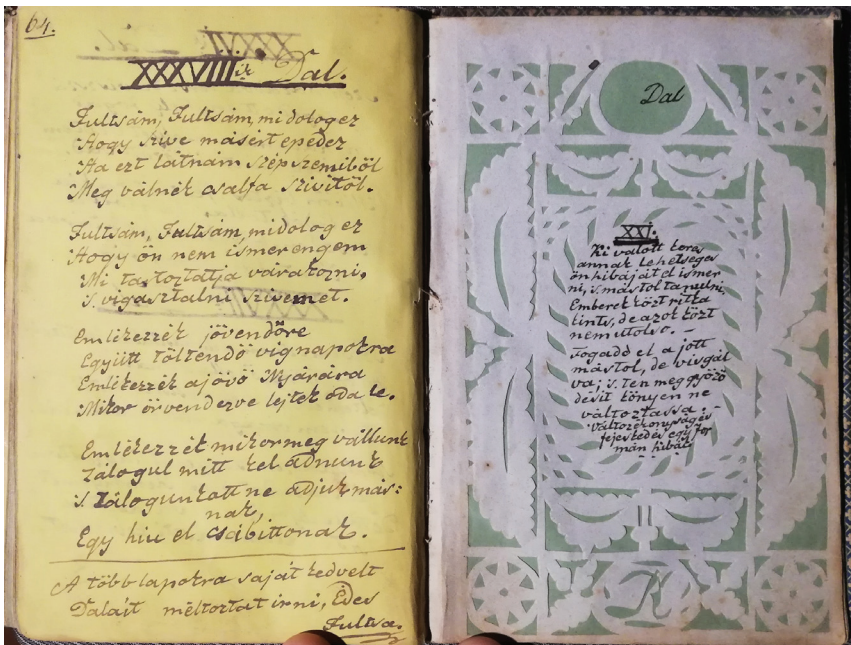 64.
XXXVIIIik Dal.
Jultsám, Jultsám, mi dolog ez
Hogy szive másért epedez
Ha ezt látnám szép szemiböl
Meg válnék csalfa szivitöl.
Jultsám, Jultsám, mi dolog ez
Hogy ön nem ismer engem
Mi várakozni,
s. vigasztalni szivemet.
Emlékezzék jövendőre
Együtt töltendö vig napokra
Emlékezzék a jövö Nyárára
Mikor örvendezve lejtek oda le.
Emlékezzék mikor meg vállunk
Zálogul mitt kel adnunk
s. Zálogunkatt ne adjuk más:
nak,
Egy hiu el csábittonak.
A több lapokra saját kedvelt
Dalait méltoztat irni, Édes
Jultsa.
Dal
XXI.
Ki válott
annak lehetséges
ön hibáját el ismer
ni, s. mástol tanulni,
Emberek közt ritka
kints, de azok közt
nem utolso. –
Fogadd el a jott
mástol, de visgál
va; s. ten meggyözö
désit könyen ne
változtassa. –
Változékonyság és
fejeskedés egy for
mán hibás
K